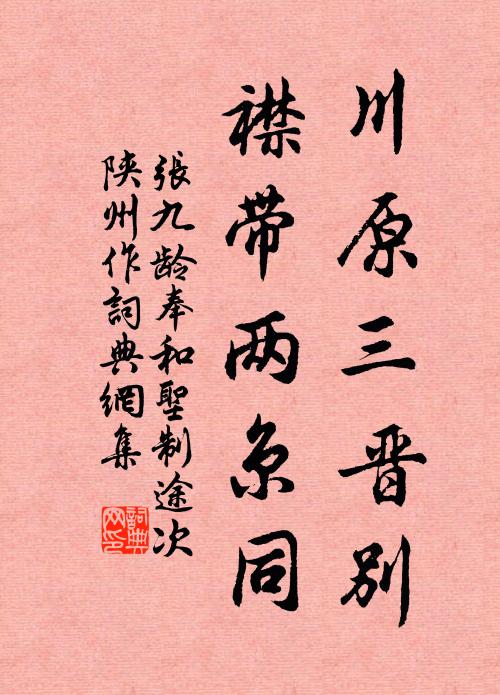 川原三晋别
襟带两京同
張九龄奉和聖制途次
陕州作詞典網集
詞典
网印